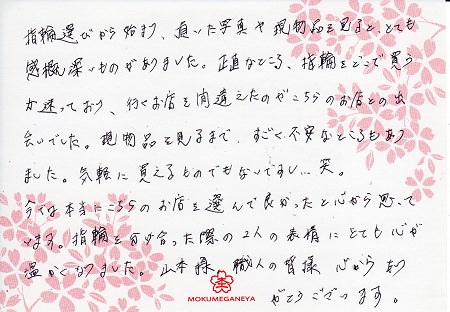 指輪選びから始まり、頂いた写真や現物品を見ると、とても
感慨深いものがありました。正直なところ、指輪をどこで買う
か迷っており、行くお店を間違えたのがこちらのお店との出
会いでした。現物品を見るまで、すごく不安なところもあり
ました。気軽に買えるものでもないですし…笑。
今では本当にこちらのお店を選んで良かったと心から思って
います。指輪を分け合った際の2人の表情にとても心が
温かくなりました。山本様、職人の皆様 心からあり
がとうございます。
MOKUMEGANEYA